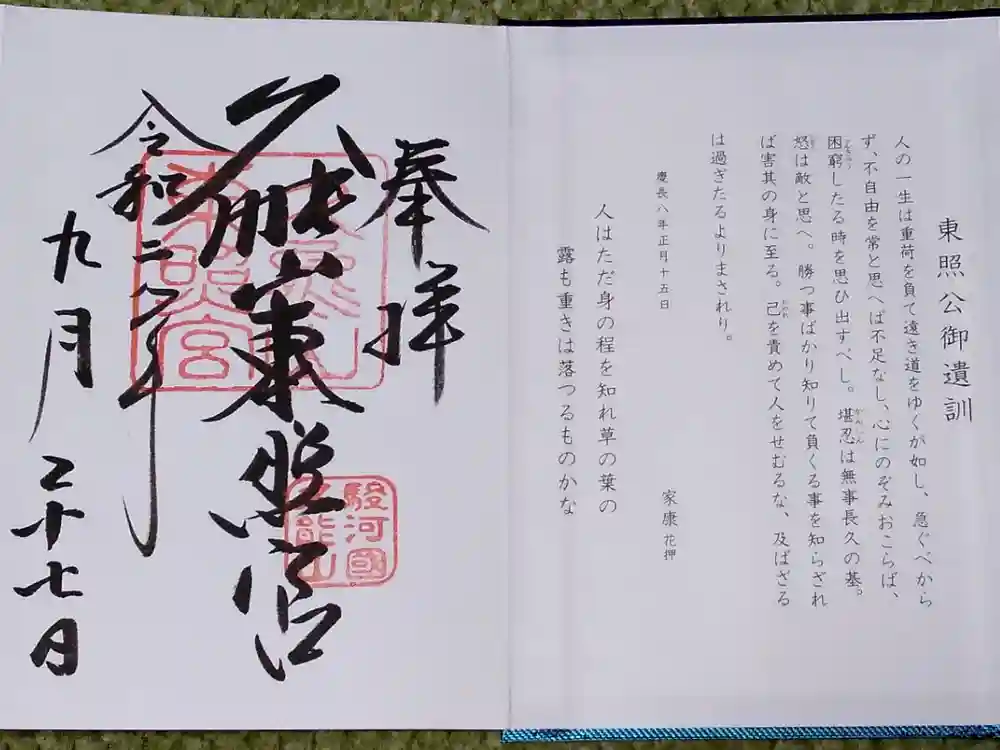 東照公御遺訓
人の一生は重荷を負て遠き道をゆくが如し、急ぐべから
ず、不自由を常と思へば不足なし、心にのぞみおこらば、
困窮したる時を思ひ出すべし。堪忍は無事長久の基。
怒は敵と思へ。勝つ事ばかり知りて負くる事を知らざれ
ば害其の身に至る。己を責めて人をせむるな、及ばざる
は過ぎたるよりまされり。
慶長八年正月十五日
家康 花押
人はただ身の程を知れ草の葉の
露も重きは落つるものかな
奉拝
久能山東照宮
令和二年
九月二十七日
東照宮
駿河國